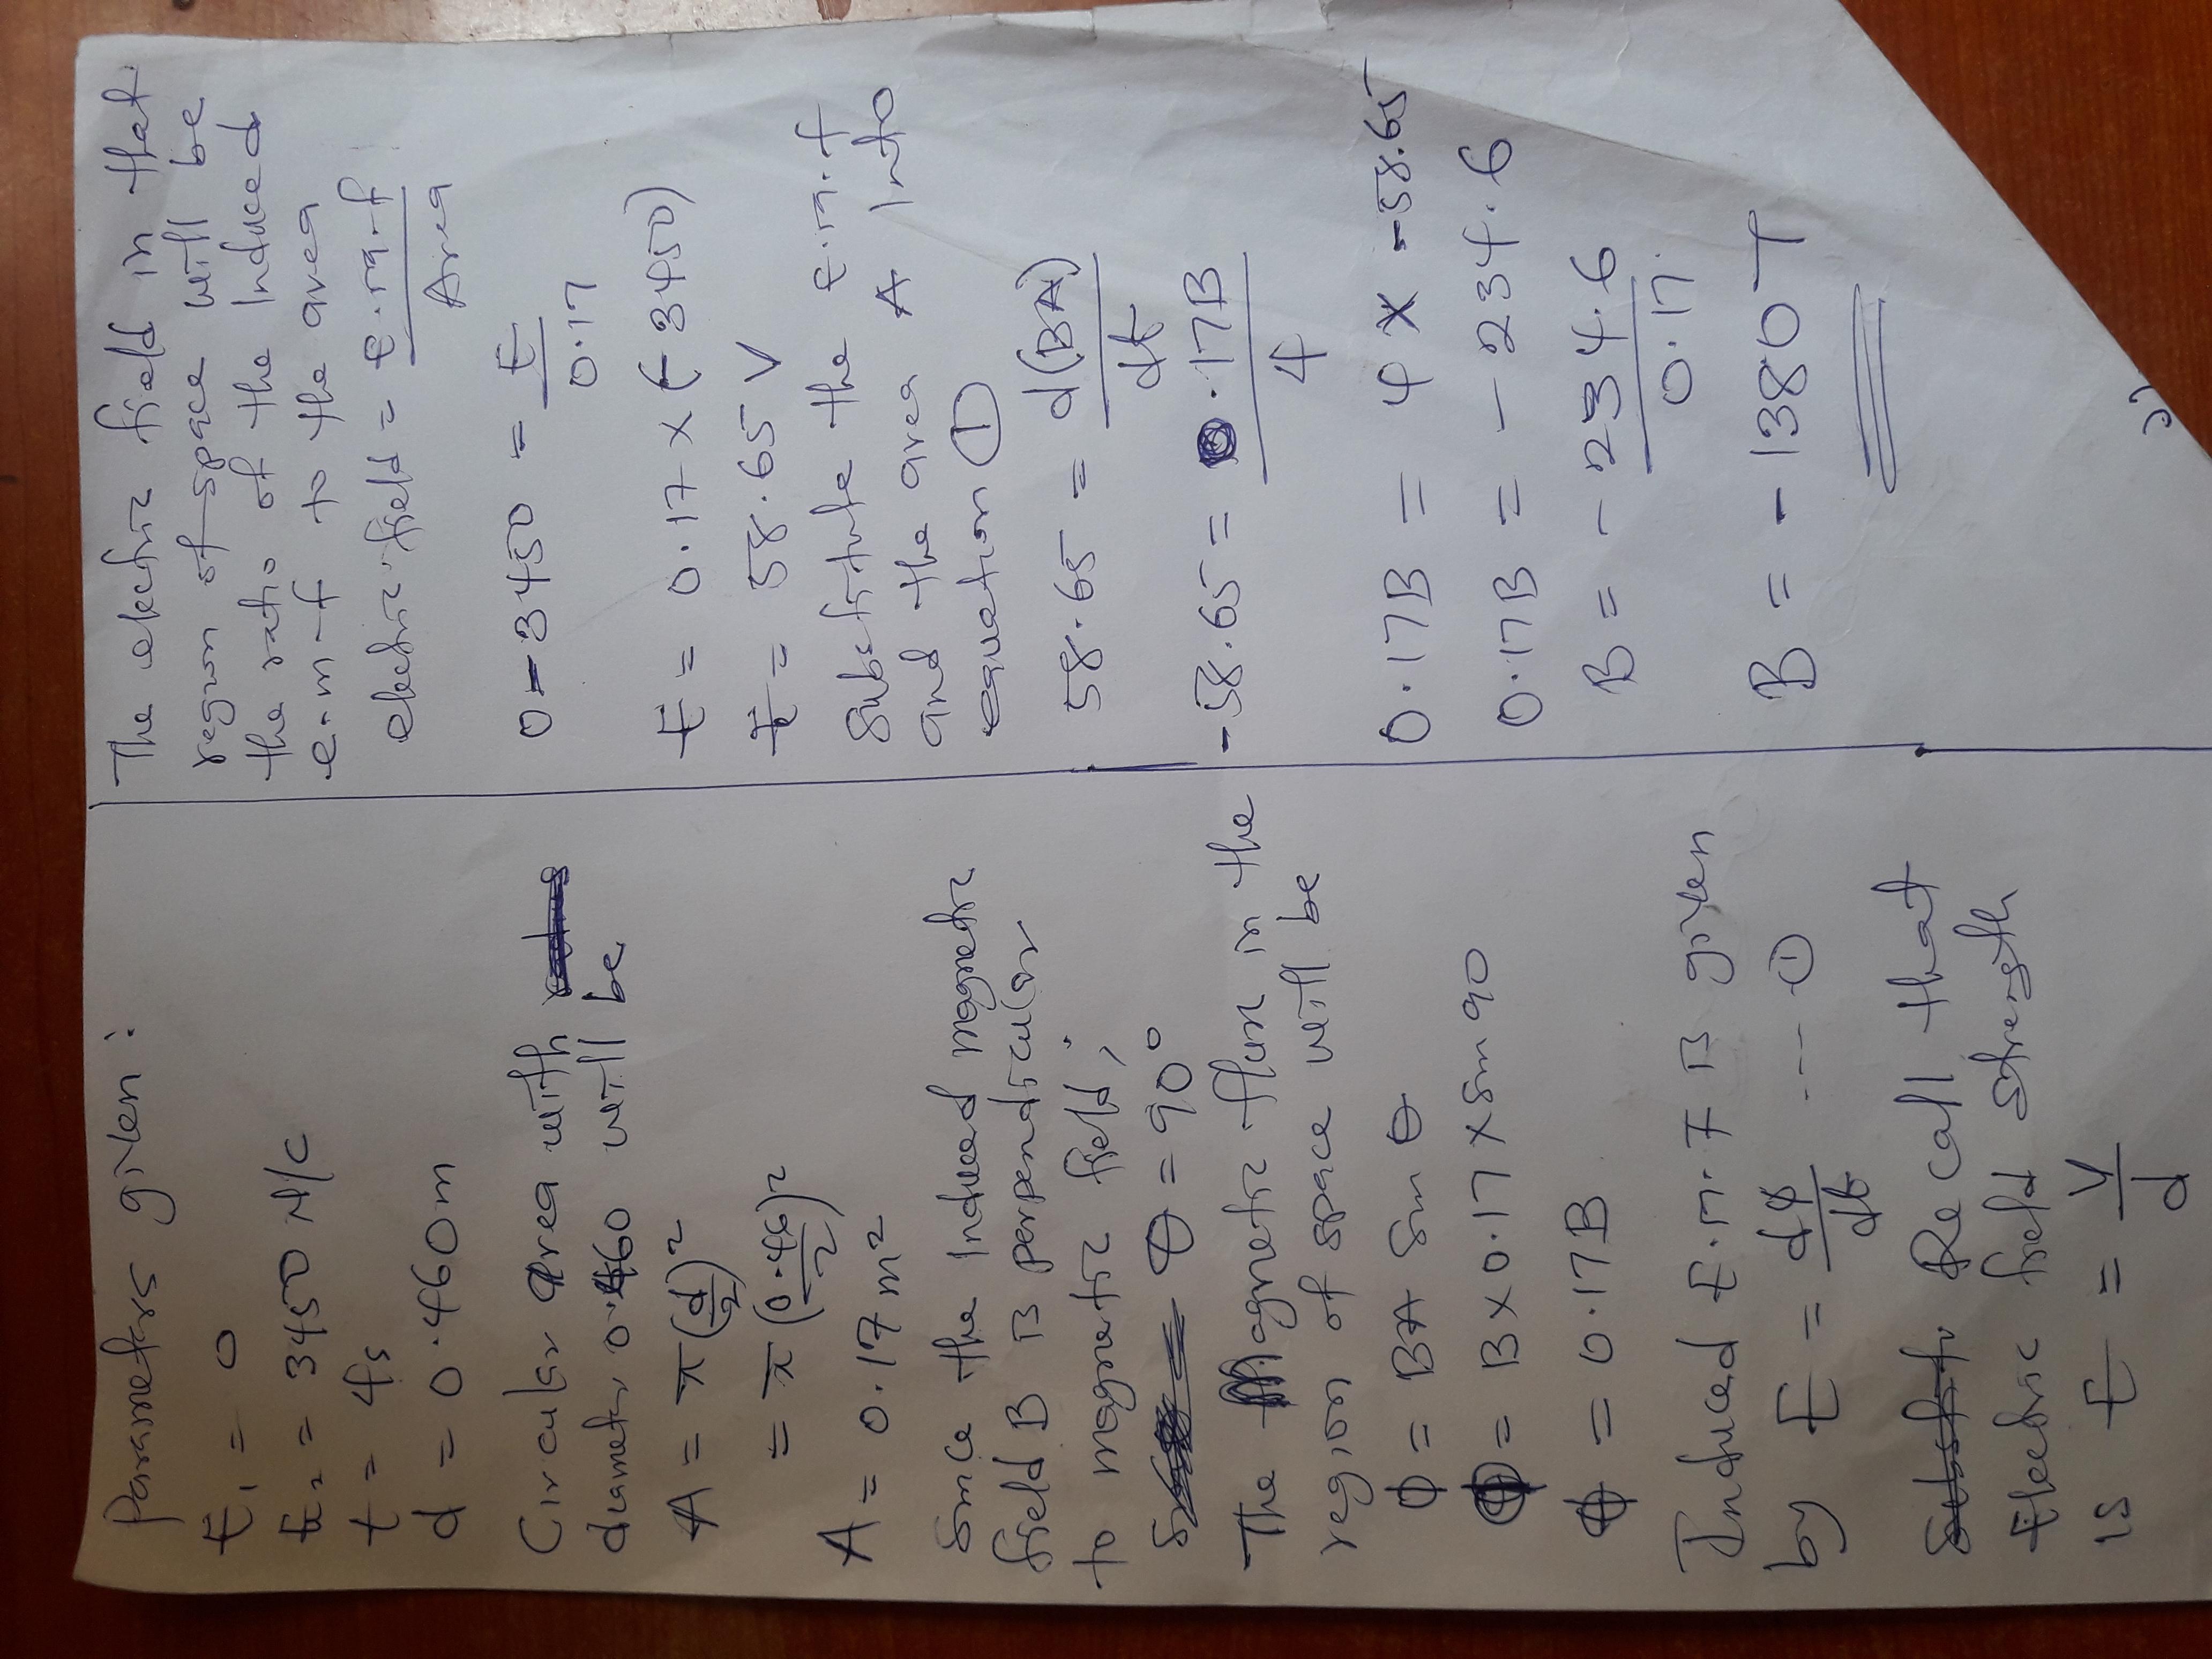 Parameters given:
E₁ = 0
E₂ = 3450 N/C
t = 4s
d = 0.460m
Circular area with
diameter 0.460 will be
A = π(d/2)²
= π(0.46/2)²
A = 0.17m²
Since the Induced magnetic
field B is perpendicular
to magnetic field,
θ = 90°
The Magnetic flux in the
region of space will be
φ = BA Sin θ
φ = B x 0.17 x Sin 90
φ = 0.17B
Induced E.m.F is given
by E = dφ/dt ---- ①
Recall that
Electric field strength
is E = V/d
The electric field in that
region of space will be
the ratio of the Induced
e.m.f to the area
electric field = e.m.f/Area
0-3450 = E/0.17
E = 0.17 x (-3450)
E = 58.65 V
Substitute the e.m.f
and the area A into
equation ①
58.65 = d(BA)/dt
-58.65 = 0.17B/4
0.17B = 4 x -58.65
0.17B = - 234.6
B = - 234.6/0.17
B = - 1380 T